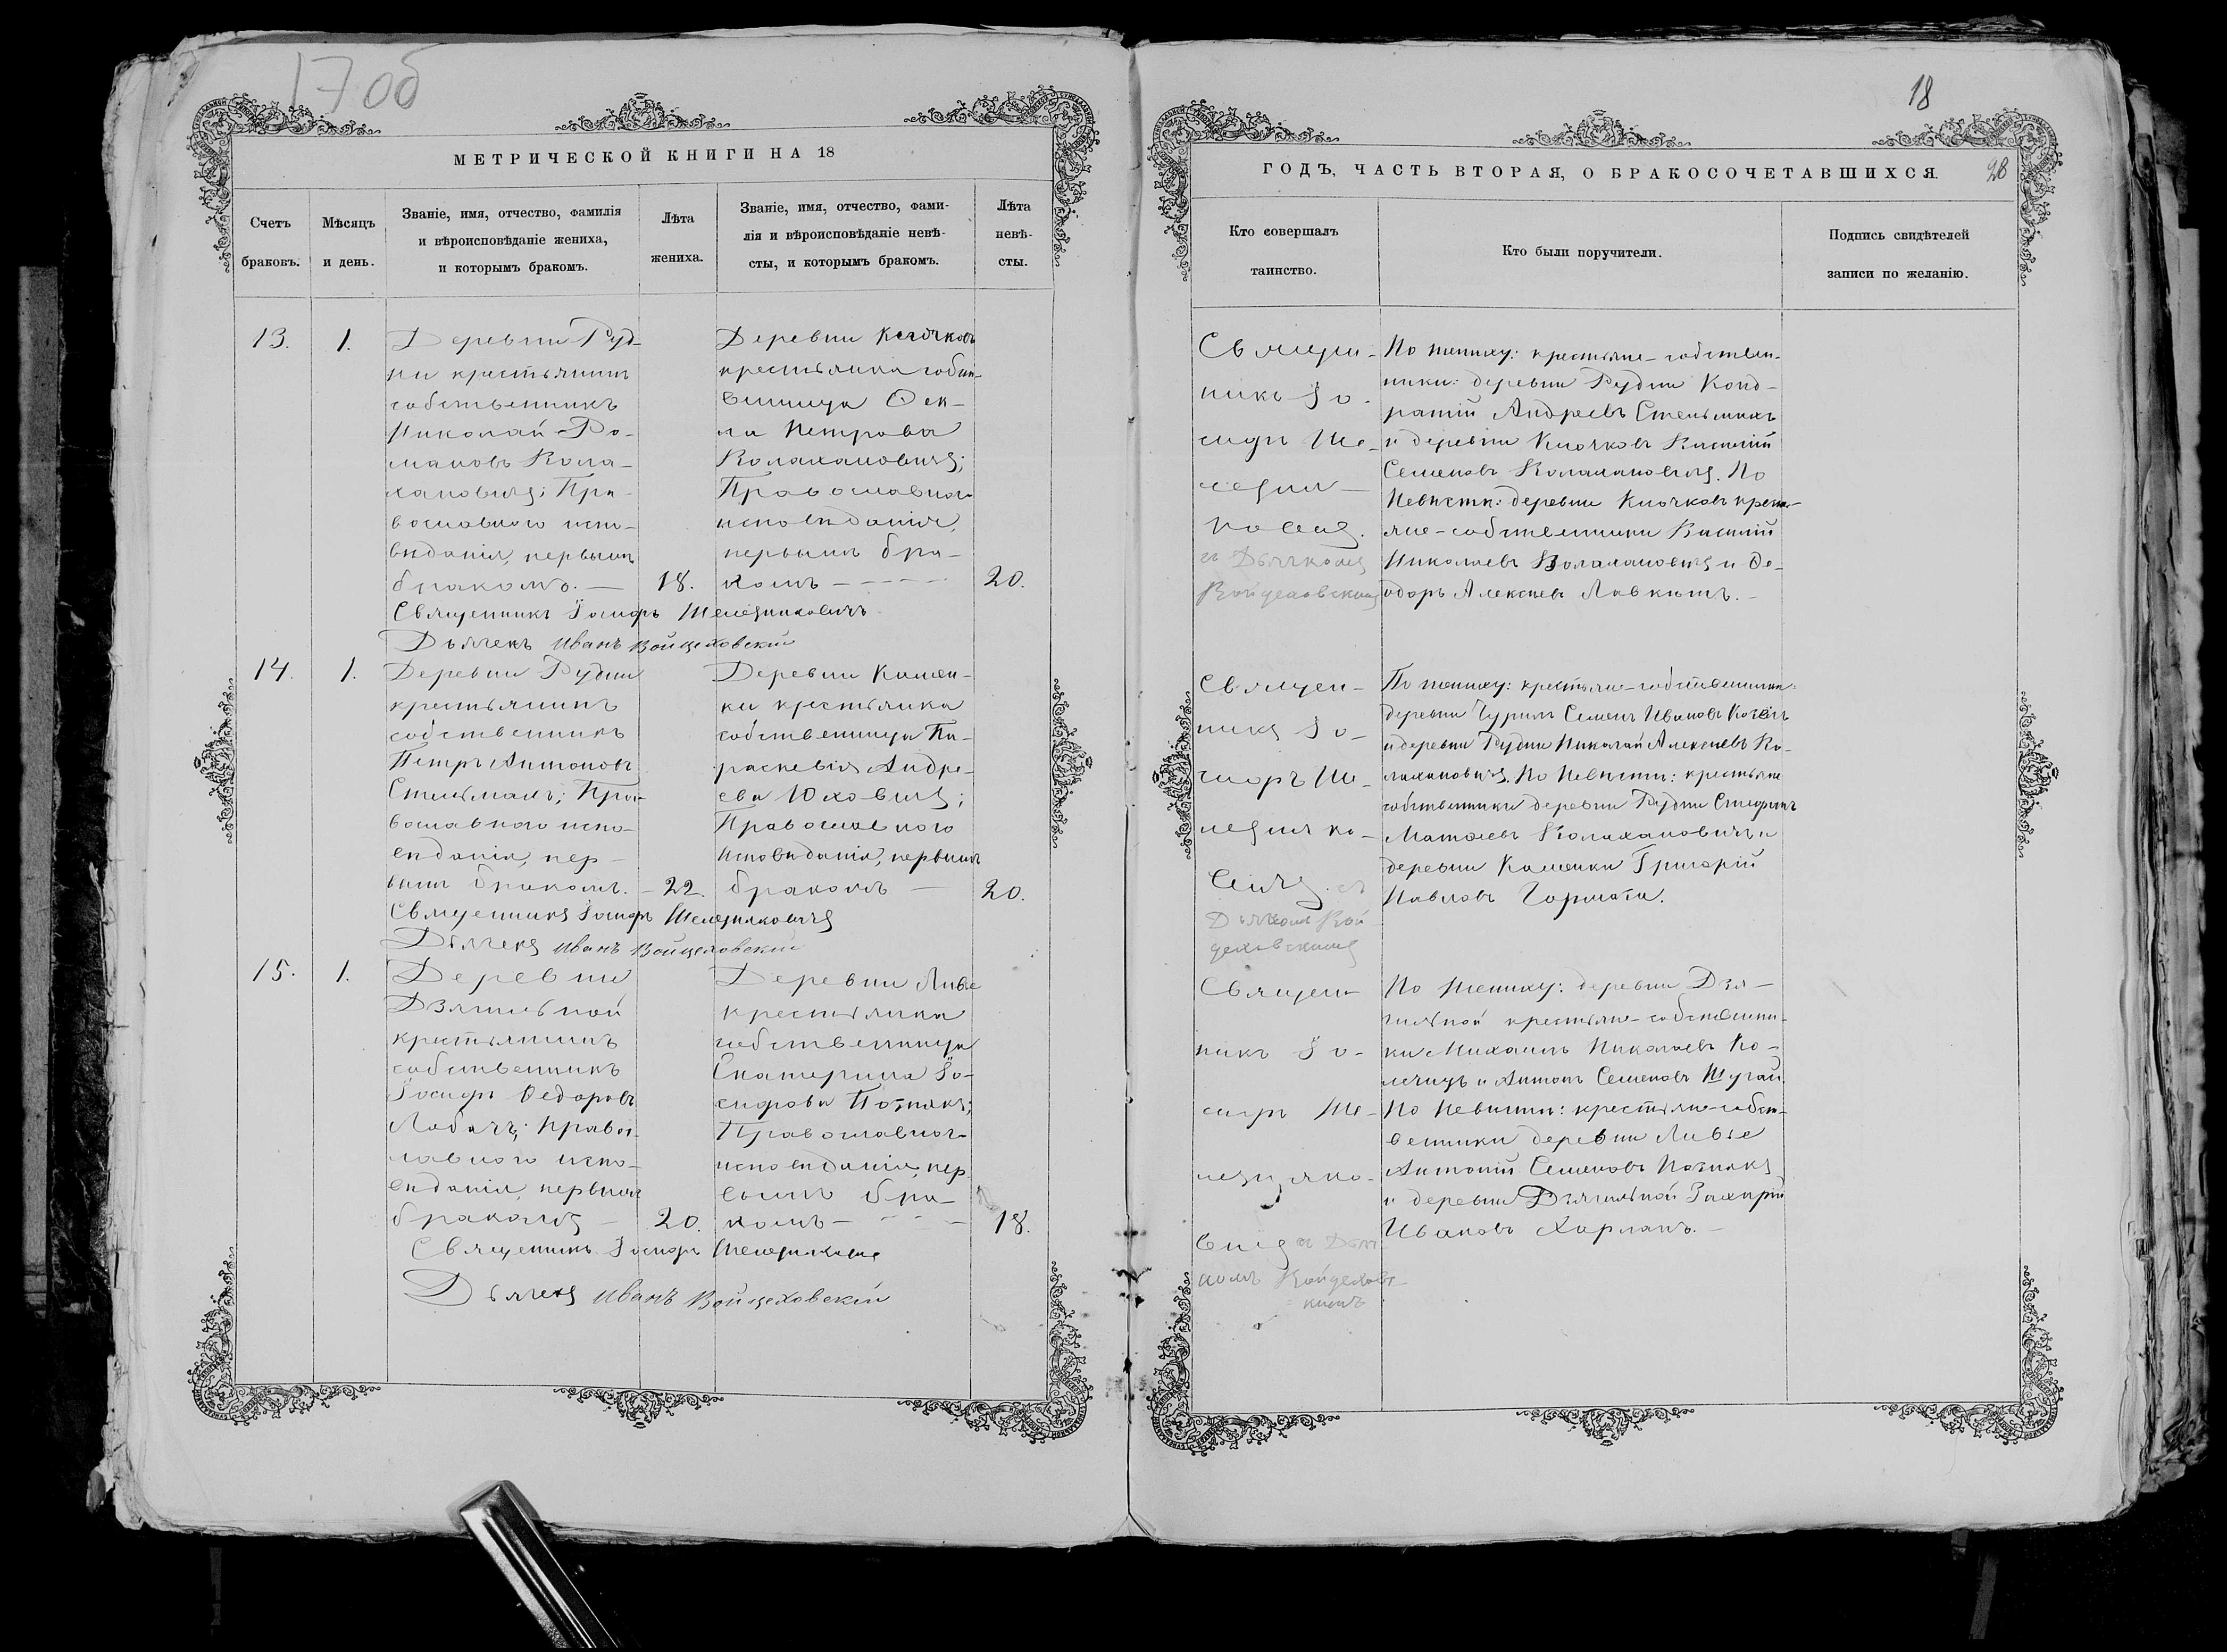 17 об
МЕТРИЧЕСКОЙ КНИГИ НА 18
Счетъ браковъ.
Мѣсяцъ и день.
Званіе, имя, отчество, фамилія и вѣроисповѣданіе жениха, и которымъ бракомъ.
Лѣта жениха.
Званіе, имя, отчество, фами-
лія и вѣроисповѣданіе невѣ-
сты, и которымъ бракомъ.
Лѣта невѣ-
сты.
13.
1.
Деревни Руд-
ни крестьянинъ
собственникъ
Николай Ро-
мановъ Кола-
хановичъ; Пра-
вославного испо-
вѣданія, первымъ
бракомъ. —
18.
Деревни Клочковъ
крестьянка собст-
венница Фек-
ла Петрова
Колахановичъ;
Православного
исповѣданія,
первымъ бра-
комъ —
20.
Священникъ Іосифъ Шелепинковичъ
Дьячекъ Иванъ Войцеховскій
14.
1.
Деревни Рудни
крестьянинъ
собственникъ
Петръ Антоновъ
Стельмахъ; Пра-
вославного испо-
вѣданія, пер-
вымъ бракомъ. —
22.
Деревни Камен-
ки крестьянка
собственница Па-
раскевія Андре-
ева Юховичъ;
Православного
исповѣданія, первымъ
бракомъ —
20.
Священникъ Іосифъ
Дьячекъ Иванъ Войцеховскій
15.
1.
Деревни
Дзягильной
крестьянинъ
собственникъ
Іосифъ Федоровъ
Лобачъ; Правос-
лавного испо-
вѣданія, первымъ
бракомъ —
20.
Деревни Ливье
крестьянка
собственница
Екатерина Іо-
сифова
Православного
исповѣданія, пер
вымъ бра-
комъ —
18.
Священникъ Іосифъ
Дьячекъ Иванъ Войцеховскій
18
ГОДЪ, ЧАСТЬ ВТОРАЯ, О БРАКОСОЧЕТАВШИХСЯ.
28
Кто совершалъ таинство.
Кто были поручители.
Подпись свидѣтелей записи по желанію.
Священ-
никъ Іо-
сифъ Ше-
съ Дьячкомъ
Войцеховскимъ
По жениху: крестьяне-собствен-
ники: деревни Рудни Конд-
ратій Андреевъ Стельмахъ
и деревни Клочковъ Василій
Семеновъ Колахановичъ. По
Невѣстѣ: деревни Клочковъ крестья-
не-собственники Василій
Николаевъ Колахановичъ и Фе-
одоръ Алексѣевъ —
Священ-
никъ Іо-
сифъ Ше-
съ
Дьячкомъ Вой
цеховскимъ
По жениху: крестьяне-собственники:
деревни Семенъ Ивановъ
и деревни Рудни Николай Алексѣевъ Ко-
лахановичъ. По Невѣсти: крестьяне
собственники деревни Рудни
Колахановичъ и
деревни Каменки Григорій
Павловъ
Священ-
никъ Іо-
сифъ Ше-
съ Дьяч
комъ Войцеховс-
кимъ
По жениху: деревни Дзя-
гильной крестьяне-собственни-
ки Михаилъ Николаевъ
и Антонъ Семеновъ Шугай.
По Невѣсти: крестьяне-собст-
венники деревни Ливье
Антоній Семеновъ
и деревни Дзягильной Захарій
Ивановъ Харланъ. —